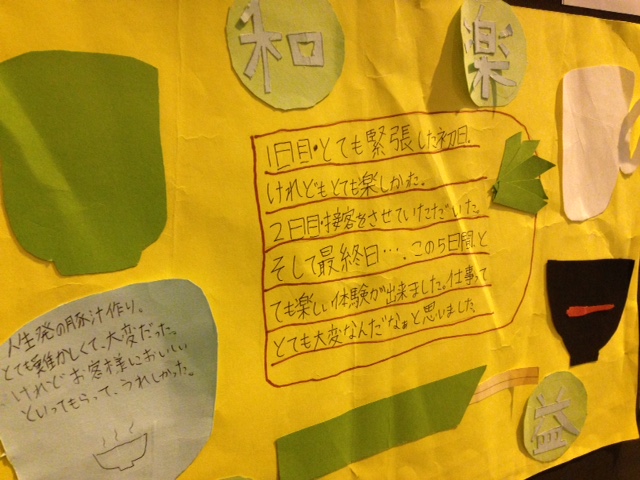 和
楽
1日目・とても緊張した初日。
けれどもとても楽しかった。
2日目・接客をさせていただいた。
そして最終日…。この5日間と
ても楽しい体験が出来ました。仕事って
とても大変なんだなぁと思いました
人生発の豚汁作り。
とても難かしくて、大変だった。
けれどお客様においしい
といってもらって、うれしかった。
益